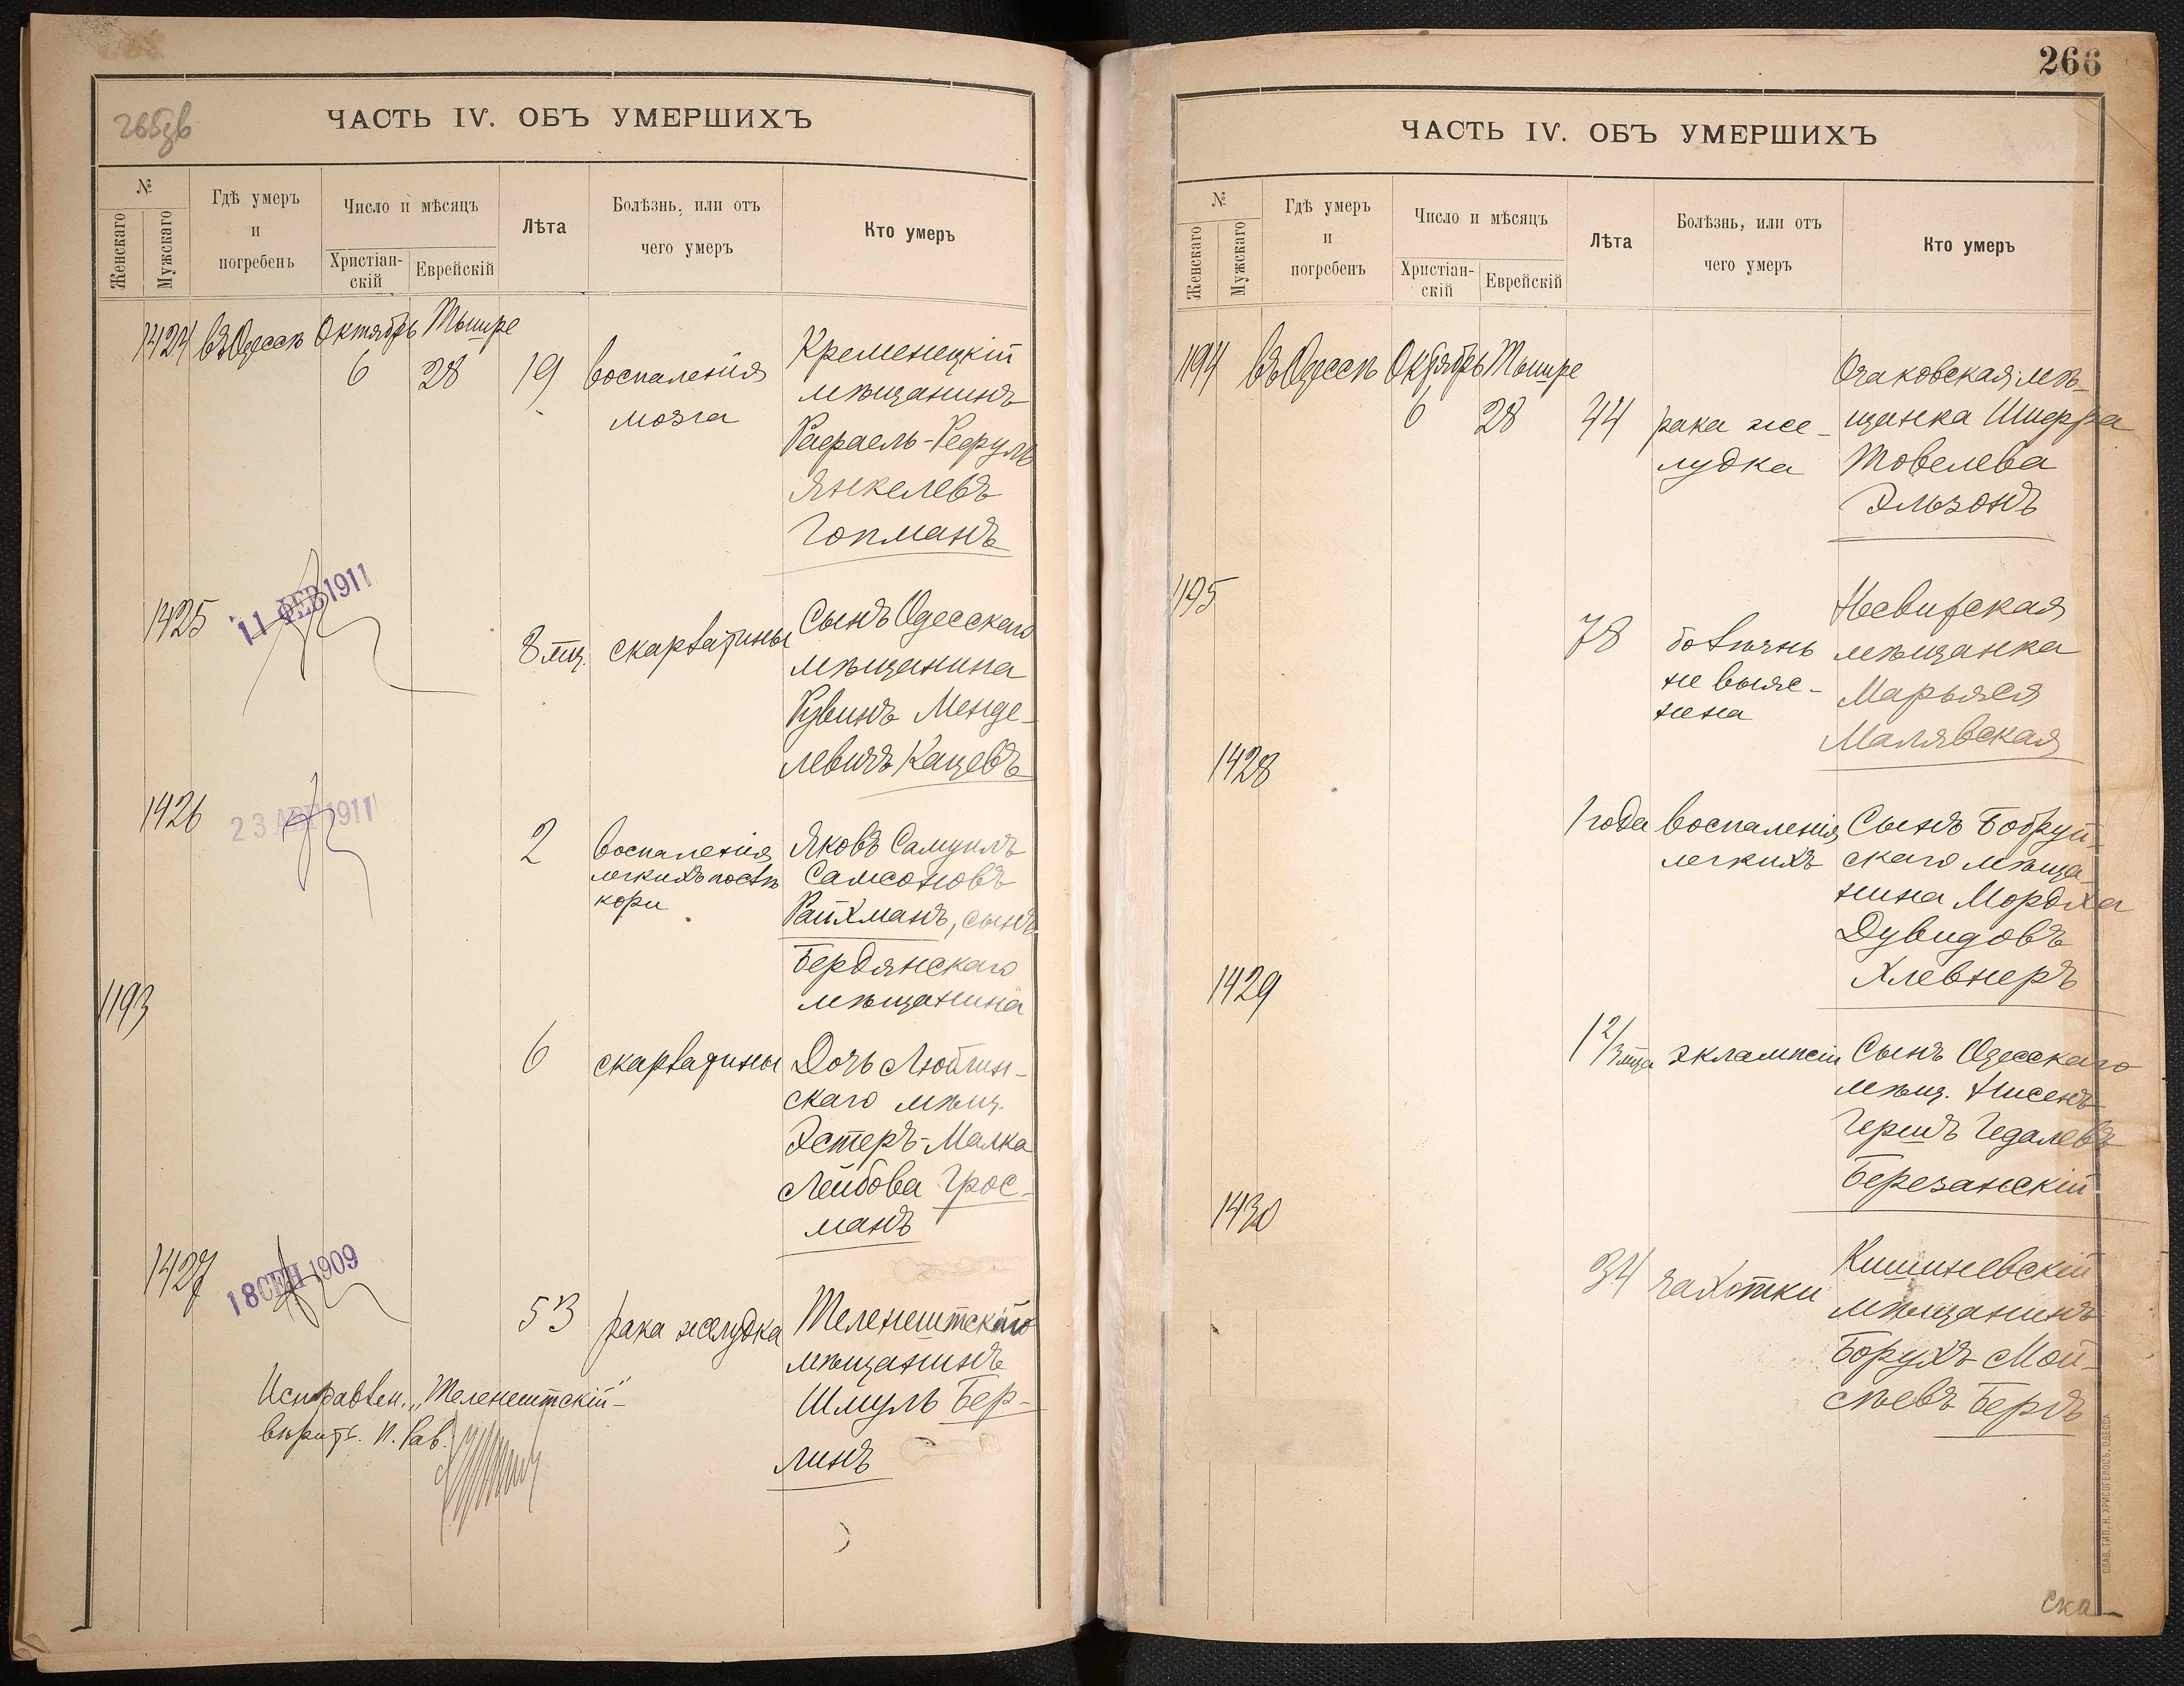 265зв
ЧАСТЬ IV. ОБЪ УМЕРШИХЪ
№
Женскаго
Мужскаго
Гдѣ умеръ
и
погребенъ
Число и мѣсяцъ
Христіан-
скій
Еврейскій
Лѣта
Болѣзнь, или отъ
чего умеръ
Кто умеръ
1424 въ Одессѣ Октябрь Тышре
6 28 19 воспаленія
мозга
Кременецкій
мѣщанинъ
Рафаель-Рефулъ
Янкелевъ
Гопманъ
1425
11 ФЕВ 1911
8 мц. скарлатины
Сынъ Одесскаго
мѣщанина
Рувинъ Менде-
левичъ Кацевъ
1426
23 АВГ 1911
2 воспаленія
легкихъ послѣ
кори
Яковъ Самуилъ
Самсоновъ
Райхманъ, сынъ
Бердянскаго
мѣщанина
1193
6 скарлатины
Дочь Люблин-
скаго мѣщ.
Эстеръ-Малка
Лейбова Грос-
манъ
1427
18 СЕН 1909
53 рака желудка
Теленештскаго
мѣщанинъ
Шмуль Бер-
линъ
Исправлен. „Теленештскій"-
вѣрить. И. Рав.
266
ЧАСТЬ IV. ОБЪ УМЕРШИХЪ
№
Женскаго
Мужскаго
Гдѣ умеръ
и
погребенъ
Число и мѣсяцъ
Христіан-
скій
Еврейскій
Лѣта
Болѣзнь, или отъ
чего умеръ
Кто умеръ
1194 въ Одессѣ Октябрь Тышре
6 28 44 рака же-
лудка
Очаковская мѣ-
щанка Шифра
Товелева
Эльзонъ
1195
78 болѣзнь
не выяс-
нена
Несвижская
мѣщанка
Марьяся
Малявская
1428
1 года воспаленія
легкихъ
Сынъ Бобруй-
скаго мѣща-
нина Мордха
Дувидовъ
Хлевнеръ
1429
1 2/3 мца эклампсіи
Сынъ Одесскаго
мѣщ. Нисенъ-
Гершъ Гедалевъ
Березанскій
1430
34 чахотки
Кишиневскій
мѣщанинъ
Борухъ Мой-
сѣевъ Беръ
СЛАВ. ТИП. Н. ХРИСОГЕЛОСЪ, ОДЕССА.
ска